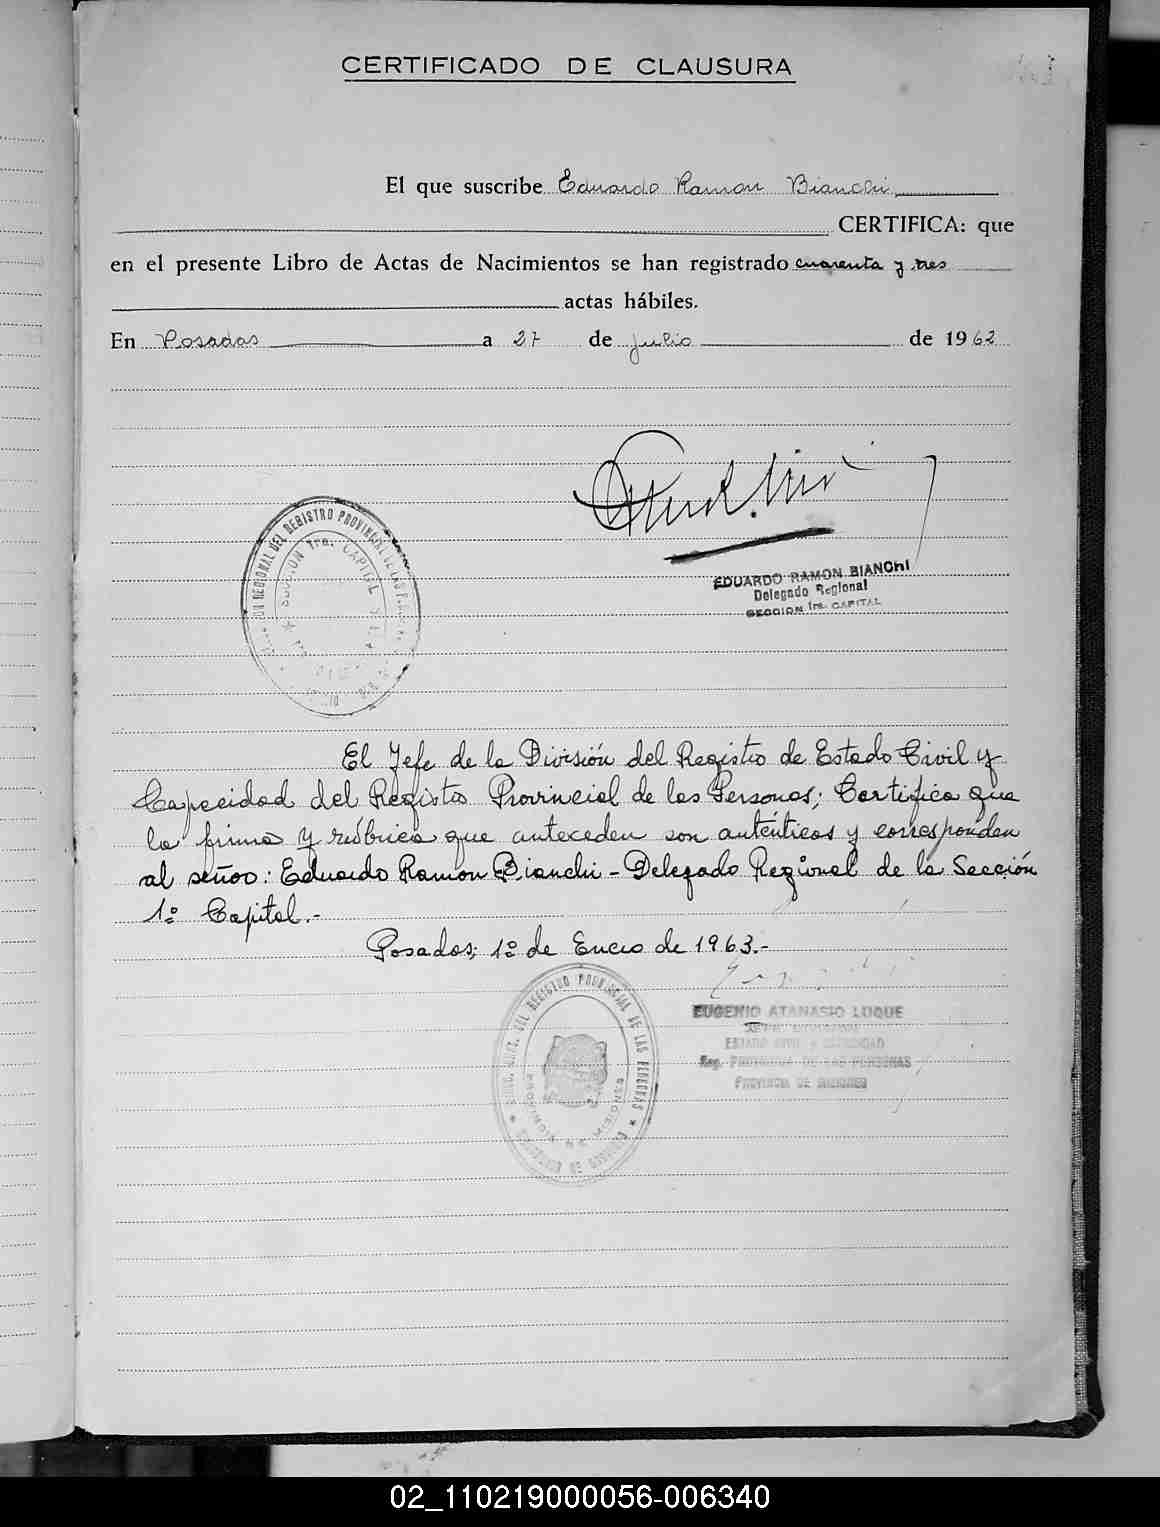 CERTIFICADO DE CLAUSURA
El que suscribe Eduardo Ramon Bianchi
CERTIFICA: que
en el presente Libro de Actas de Nacimientos se han registrado cuarenta y tres
actas hábiles.
En Posadas a 27 de Julio de 1962
EDUARDO RAMON BIANCHI
Delegado Regional
SECCION 1ra. CAPITAL
REGIONAL DEL REGISTRO PROVINCIAL DE LAS
SECCION 1ra. CAPITAL
El Jefe de la División del Registro de Estado Civil y
Capacidad del Registro Provincial de las Personas; Certifica que
la firma y rúbrica que anteceden son auténticas y corresponden
al señor: Eduardo Ramon Bianchi - Delegado Regional de la Sección
1º Capital.-
Posadas, 1º de Enero de 1963.-
DEL REGISTRO PROVINCIAL DE LAS PERSONAS
PROVINCIA DE MISIONES
EUGENIO ATANASIO LUQUE
ESTADO CIVIL Y CAPACIDAD
Reg. PROVINCIAL DE LAS PERSONAS
PROVINCIA DE MISIONES
02_110219000056-006340